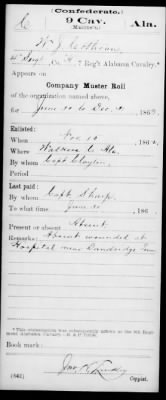 (Confederate.)
C 9 Cav. Ala.
Wm J. Calhoun
Co. , 7 Reg't Alabama Cavalry.*
Appears on
Company Muster Roll
of the organization named above,
for June 30 to Dec 31, 1863.
Enlisted:
When , 186
Where Walker Co Ala.
By whom Capt Clayton
Period
Last paid:
By whom Capt Sharp
To what time June 30, 186
Present or absent Absent
Remarks: Absent wounded at
Hospital near Dandridge Tenn
* This company was subsequently known as the 9th Regiment Alabama Cavalry.
Book mark:
(642) Copyist.